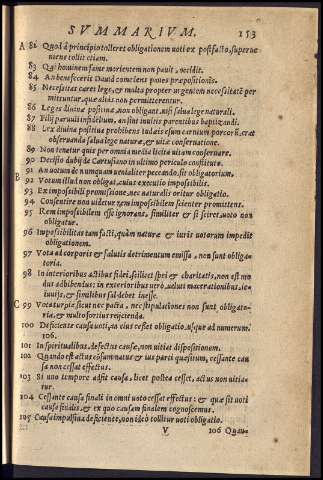 SVMMARIVM. 153
A 82 Quod à principio tolleret obligationem uoti ex postfacto, superue
niens tollit etiam.
83 Qui hominem fame morientem non pauit, occidit.
84 An benefecerit Dauid comedens panes præpositionis.
85 Necessitas caret lege, & multa propter urgentem necessitatē per
mittuntur, quæ aliàs non permitterentur.
86 Leges diuinæ positiuæ, non obligant, nisi salua lege naturali.
87 Filij paruuli infidelium, an sint inuitis parentibus baptizandi.
88 Lex diuina positiua prohibens iudæis esum carnium porcorū, erat
obseruanda salua lege naturæ, & uitæ conseruatione.
89 Non tenetur quis per omnia media licita uitam conseruare.
90 Decisio dubij de Cartusiano in ultimo periculo constituto.
B 91 An uotum de nunquam uenialiter peccando, sit obligatorium.
92 Votum illud non obligat, cuius executio impossibilis.
93 Ex impossibili promissione, nec naturalis oritur obligatio.
94 Consentire non uidetur rem impossibilem scienter promittens.
95 Rem impossibilem esse ignorans, similiter & si sciret, uoto non
obligatur.
96 Impossibilitas tam facti, quàm naturæ & iuris uotorum impedit
obligationem.
97 Vota ad corporis & salutis detrimentum emissa, non sunt obliga-
toria.
98 In interioribus actibus fidei, scilicet spei & charitatis, non est mo
dus adhibendus: in exterioribus uerò, ueluti macerationibus, ie-
iunijs, & similibus sal debet inesse.
C 99 Vota turpia, sicut nec pacta, nec stipulationes non sunt obligato-
ria, & multo fortius reijcienda.
100 Deficiente causa uoti, an eius cesset obligatio, usque ad numerum
106.
101 In spiritualibus, defectus causæ, non uitiat dispositionem.
102 Quando est actus cōsummatus & ius parti quæsitum, cessante cau
sa non cessat effectus.
103 Si uno tempore adsit causa, licet postea cesset, actus non uitia-
tur.
104 Cessante causa finali in omni uoto cessat effectus: & quæ sit uoti
causa finalis, & ex quo causam finalem cognoscemus.
105 Causa impulsiua deficiente, non ideò tollitur uoti obligatio.
V 106 Quan-